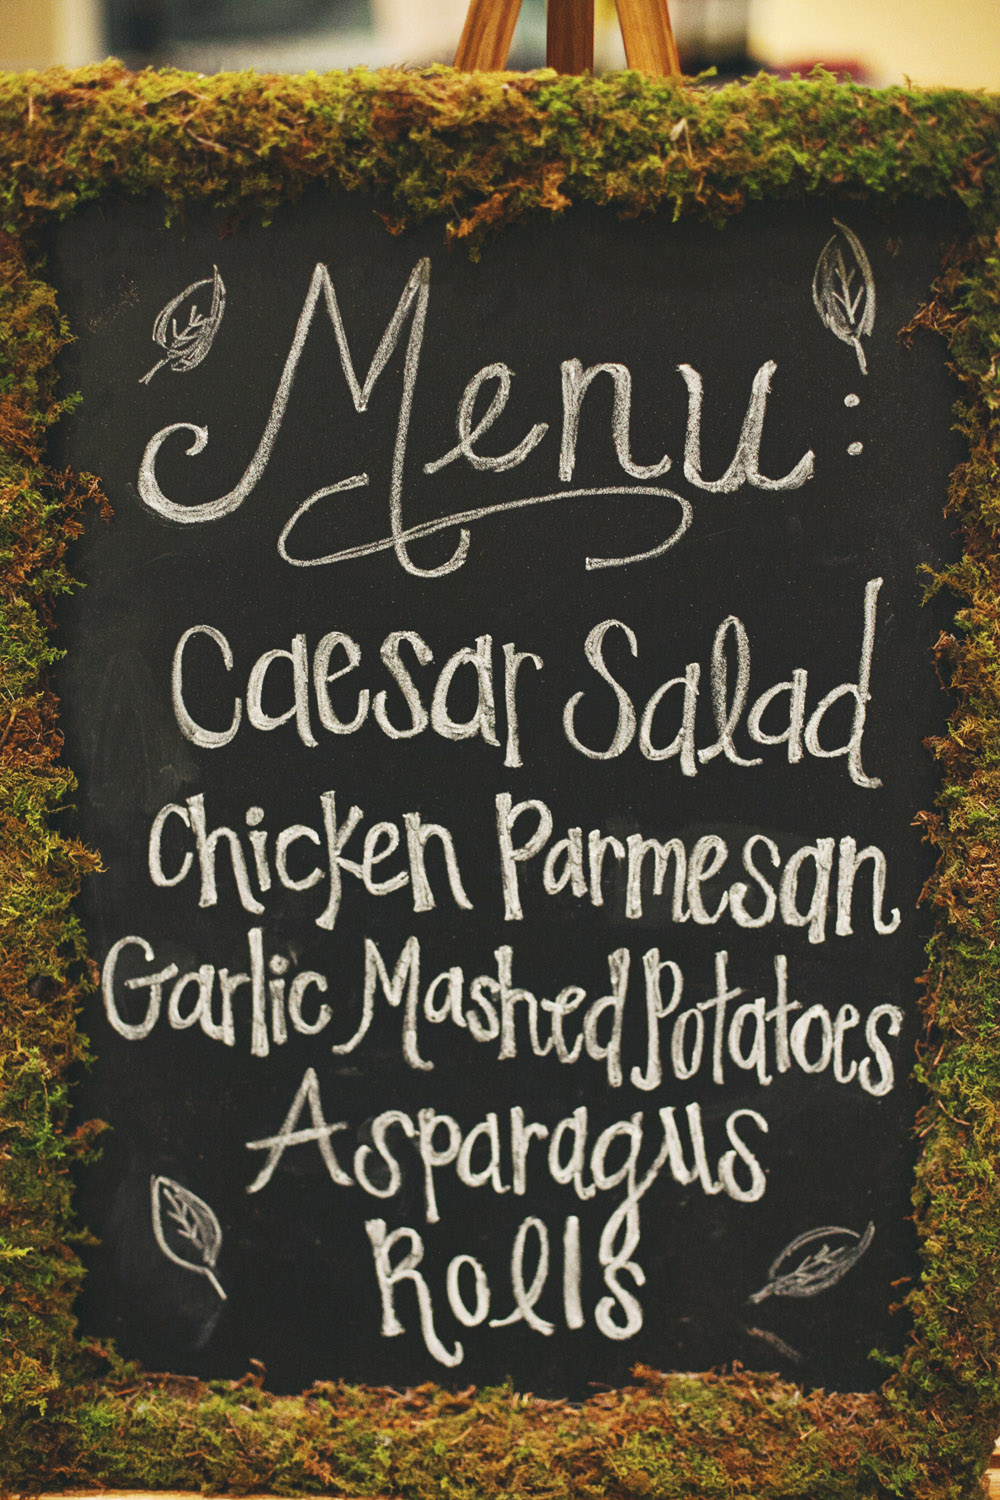 Menu:
Caesar Salad
Chicken Parmesan
Garlic Mashed Potatoes
Asparagus
Rolls